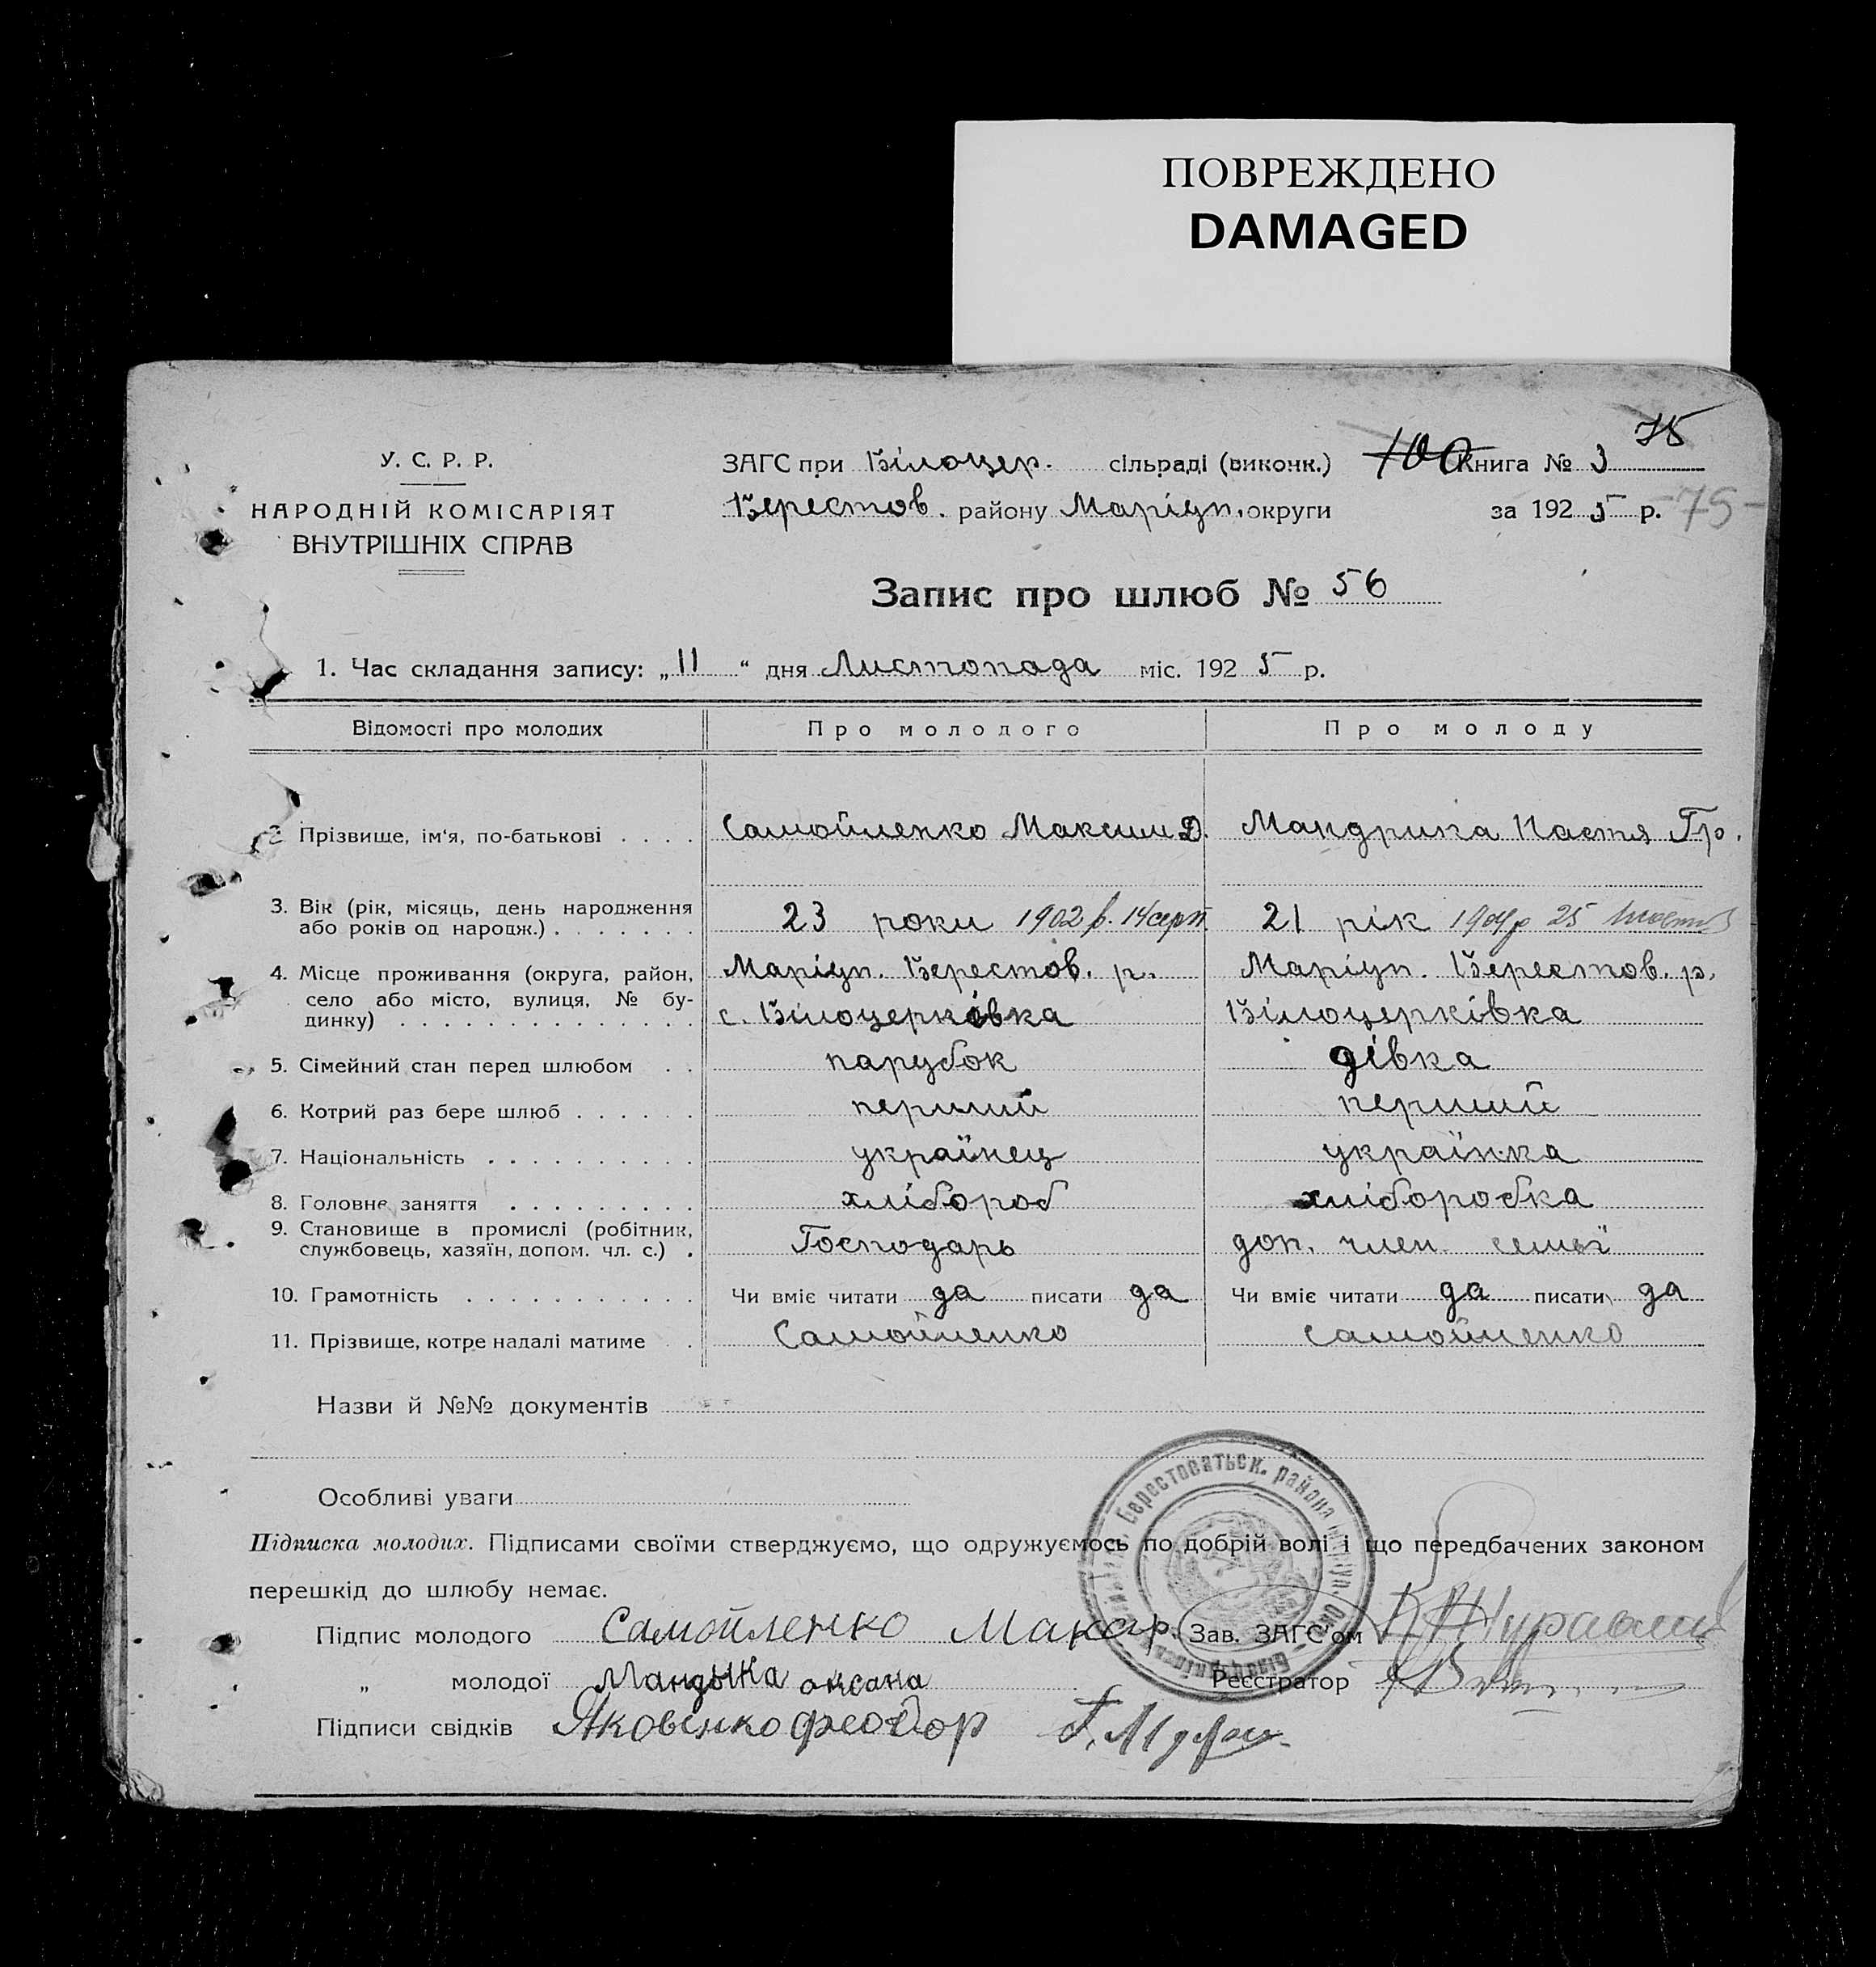 ПОВРЕЖДЕНО
DAMAGED
75
У. С. Р. Р.
НАРОДНІЙ КОМІСАРІЯТ
ВНУТРІШНІХ СПРАВ
ЗАГС при Білоцер. сільраді (виконк.) 100 Книга № 3
Берестов. району Маріуп. округи за 1925 р. -75-
Запис про шлюб № 56
1. Час складання запису: „11“ дня Листопада міс. 1925 р.
Відомості про молодих Про молодого Про молоду
2. Прізвище, ім'я, по-батькові . . . . Самойленко Максим Д. Мандрика Настя Гр.
3. Вік (рік, місяць, день народження
або років од народж.) . . . . . . . 23 роки 1902 р. 14 серп 21 рік 1904 р 25
4. Місце проживання (округа, район, Маріуп. Берестов. р. Маріуп. Берестов. р.
село або місто, вулиця, № бу-
динку) . . . . . . . . . . . . . . с. Білоцерківка Білоцерківка
5. Сімейний стан перед шлюбом . . парубок дівка
6. Котрий раз бере шлюб . . . . . . перший перший
7. Національність . . . . . . . . . . українец українка
8. Головне заняття . . . . . . . . . хлібороб хліборобка
9. Становище в промислі (робітник,
службовець, хазяїн, допом. чл. с.) . Господарь доп. член. семьї
10. Грамотність . . . . . . . . . . . Чи вміє читати да писати да Чи вміє читати да писати да
11. Прізвище, котре надалі матиме . . Самойленко Самойленко
Назви й №№ документів
Особливі уваги
Берестоватьск. района Маріуп. Ок
Підписка молодих. Підписами своїми стверджуємо, що одружуємось по добрій волі і що передбачених законом
перешкід до шлюбу немає.
Підпис молодого Самойленко Макар. Зав. ЗАГС'ом
„ молодої Мандыка оксана Реєстратор
Підписи свідків Яковенко феодор